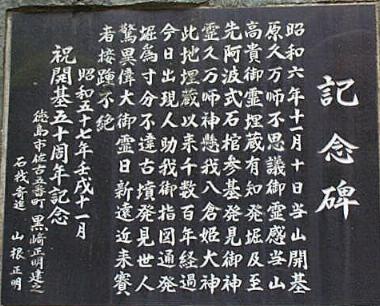 記念碑
昭和六年十一月十日当山開基
原久万师不思議御霊感当山
高貴御霊埋蔵有知発堀及至
先阿波式石棺参基発見御神
霊久万师神懸我八倉姫大神
此地埋蔵以来千数百年経過
今日出現人助我御指図通発
堀為寸分不違古墳発見世人
驚異偉大御霊日新遠近来賽
者接踵不絶
昭和五十七年壬戌十一月
祝開基五十周年記念
徳島市佐古五番町 黒崎正明建之
石載寄進 山根正明